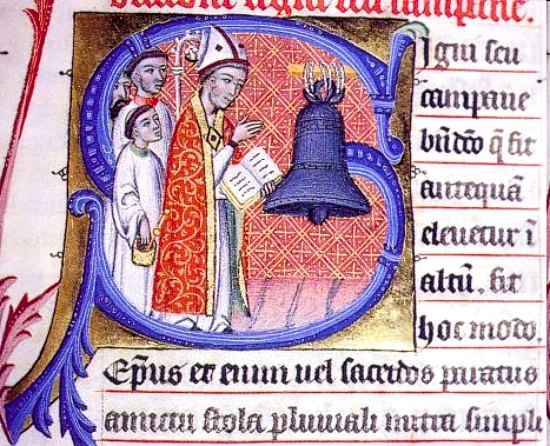 signi seu campane.
Signi seu
campane
bn̄dc̄o q̄ fit
antequā
eleuetur ī
altū. fit
hoc modo.
Ep̄us et enim uel sacerdos paratus
amictu stola pluuiali mitra simpli